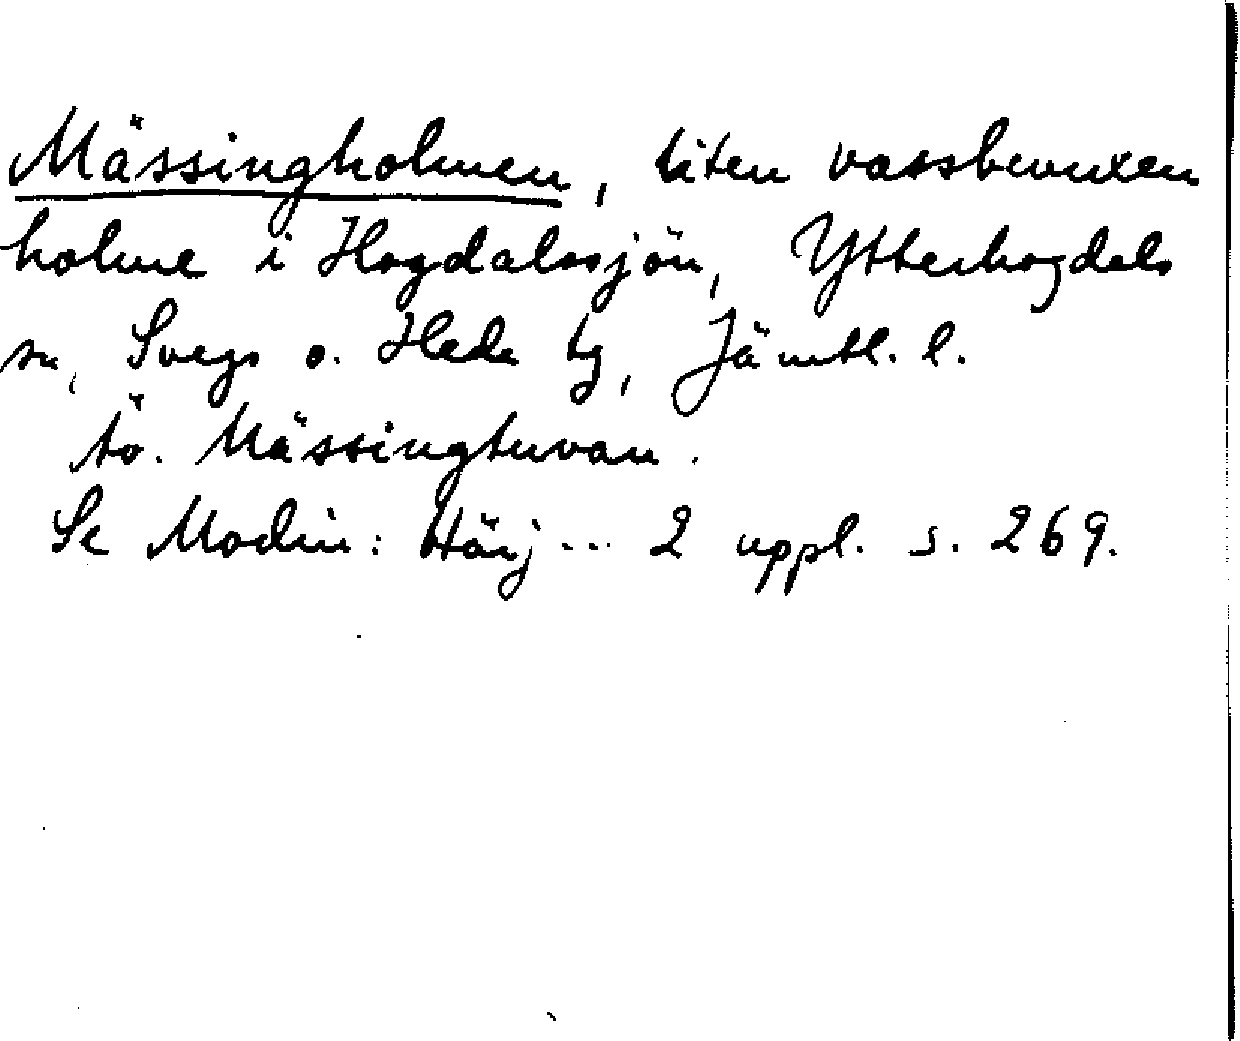 Mässingholmen, liten vassbevuxen
holme i Hogdalssjön, Ytterhogdals
sn, Svegs o. Hede tg, Jämtl. l.
Äv. Mässingtuvan.
Se Modin: Härj... 2 uppl. s. 269.